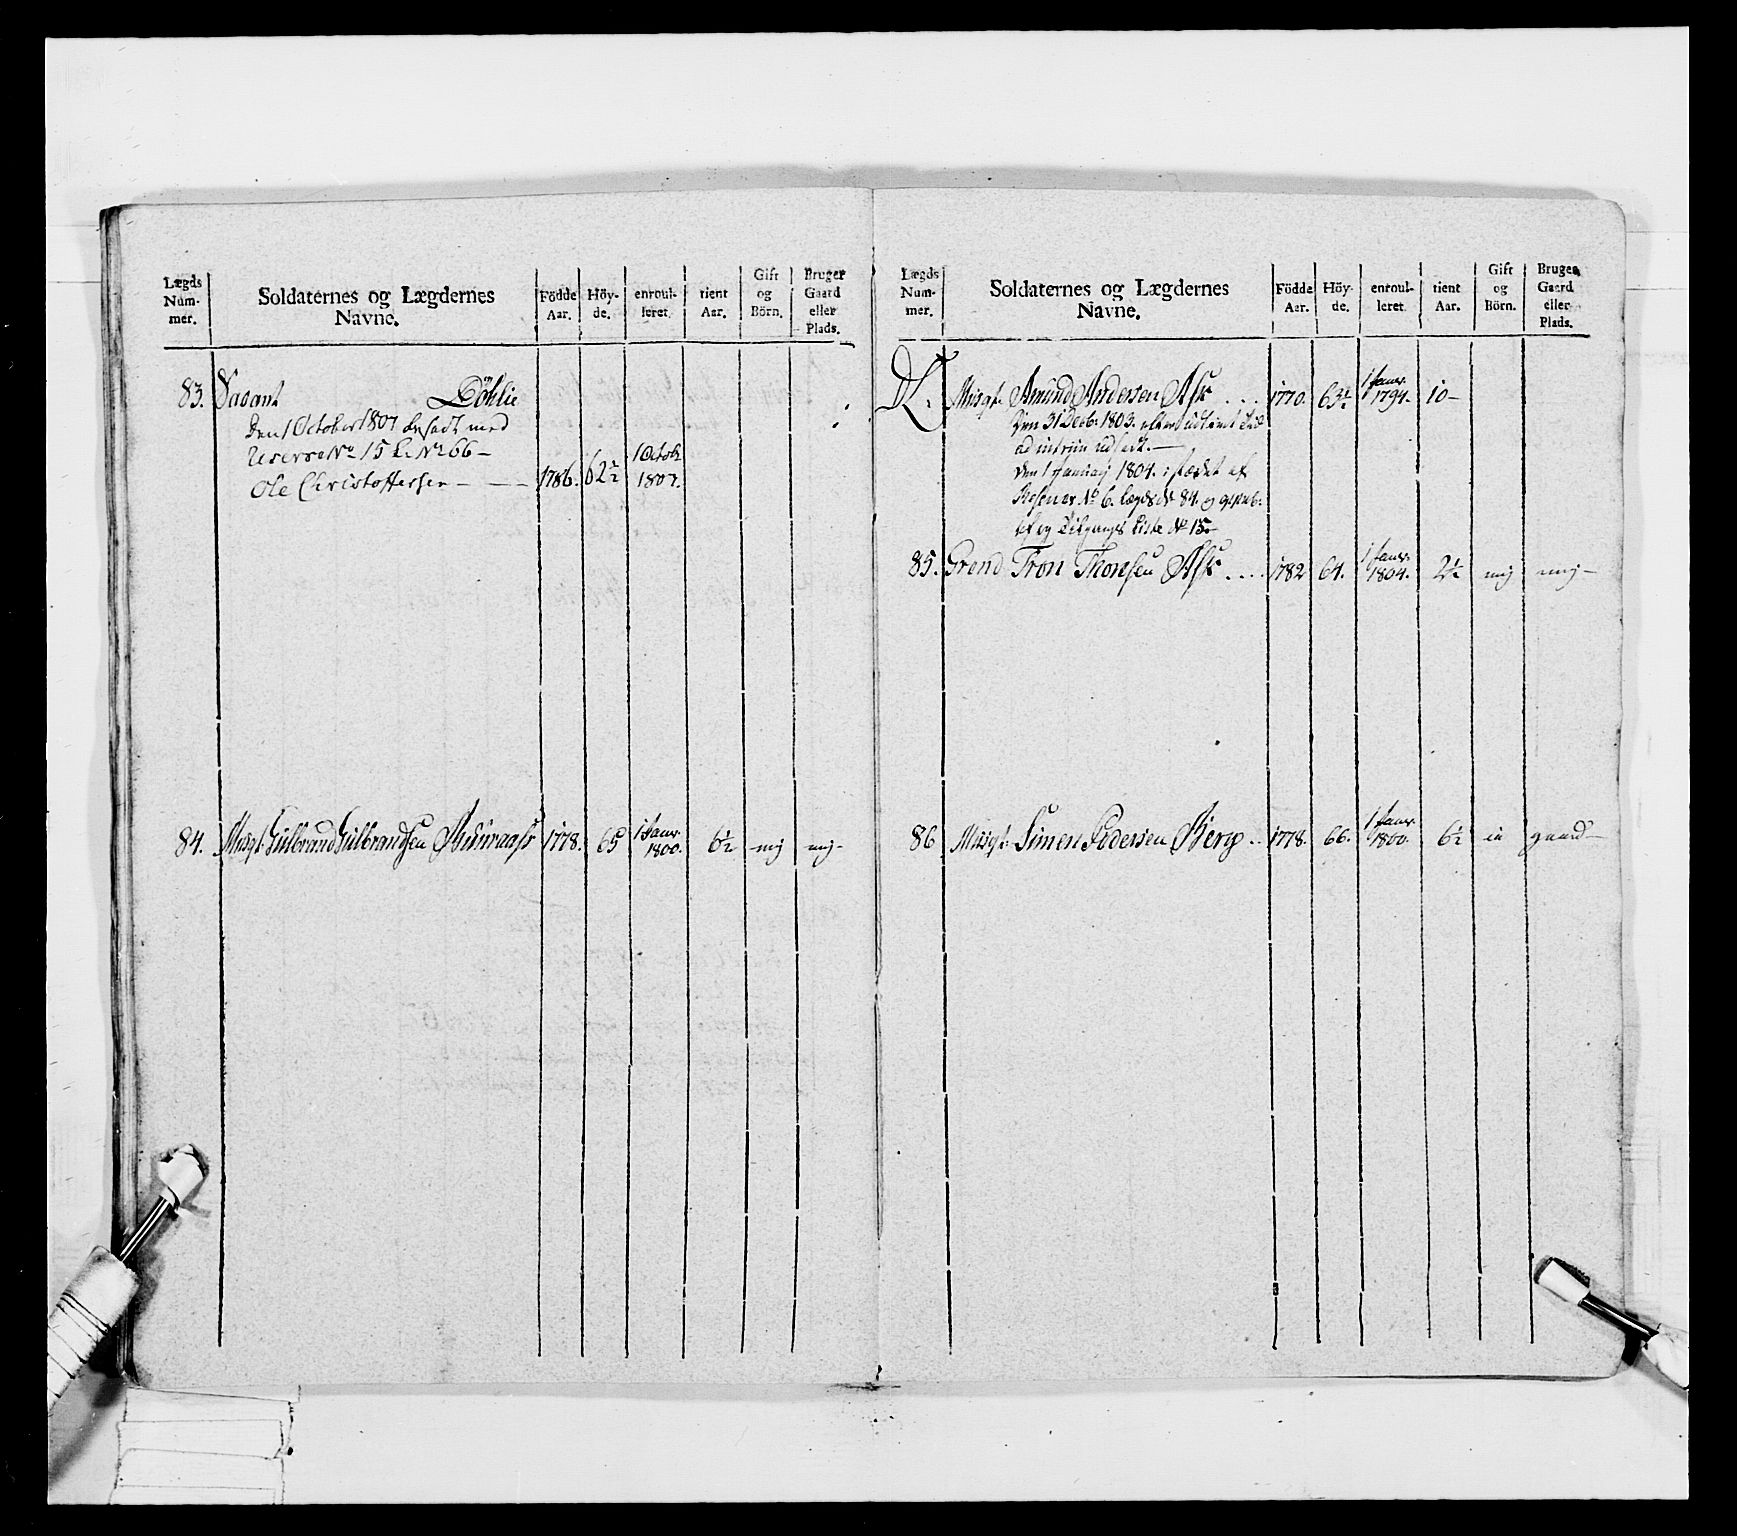 Lægds Num- mer.
Soldaternes og Lægdernes Navne.
Födde Aar.
Höy- de.
enroul- leret
tient Aar.
Gift og Börn.
Bruger Gaard eller Plads.
83. Vacant Döhlie
Den 1 October 1807 besadt med
Reserve No 15 L. No 66 –
Ole Christophersen – – – 1786. 62½ 1 Octob: 1807.
84. Musqt: Gulbrand Gulbrandsen 1778. 65 1 Janr. 1800. 6½ nej nej –
Lægds Num- mer.
Soldaternes og Lægdernes Navne.
Födde Aar.
Höy- de.
enroul- leret
tient Aar.
Gift og Börn.
Bruger Gaard eller Plads.
Musqt: Amund Andersen Ask . . . 1770. 63½ 1 Janr. 1794. 10 –
Den 31 Decb: 1803. efter udtient Tid
ad interim udsadt. –
den 1 January 1804. i stædet af
Reserve No 6. Lægds No 84.
Tilgangs Liste No 15. –
85. Grend Tron Thoresen Ask . . . . 1782 64. 1 Janr. 1804. 2½ nej nej –
86 Musqt: Simen Pedersen Berg . . 1778. 66. 1 Janr. 1800. 6½ ia gaard –